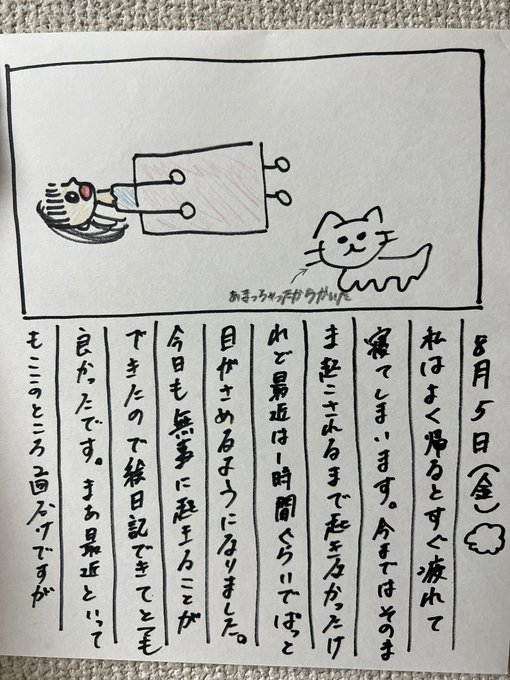 あまっちゃったからかいた
8月5日(金)
私はよく帰るとすぐ疲れて
寝てしまいます。今まではそのま
ま起こされるまで起きなかったけ
れど最近は1時間ぐらいでぱっと
目がさめるようになりました。
今日も無事に起きることが
できたので絵日記できてとても
良かったです。まあ最近といって
もここのところ2回だけですが